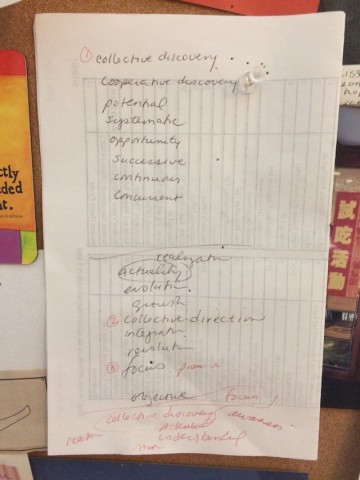 ① collective discovery
cooperative discovery
potential
systematic
opportunity
successive
continuous
concurrent
realization
actuality
evolution
growth
collective direction
integration
revolution
focus
objective focus
collective discovery awareness
potential
understanding
ctly
ded
nt.
試吃活動